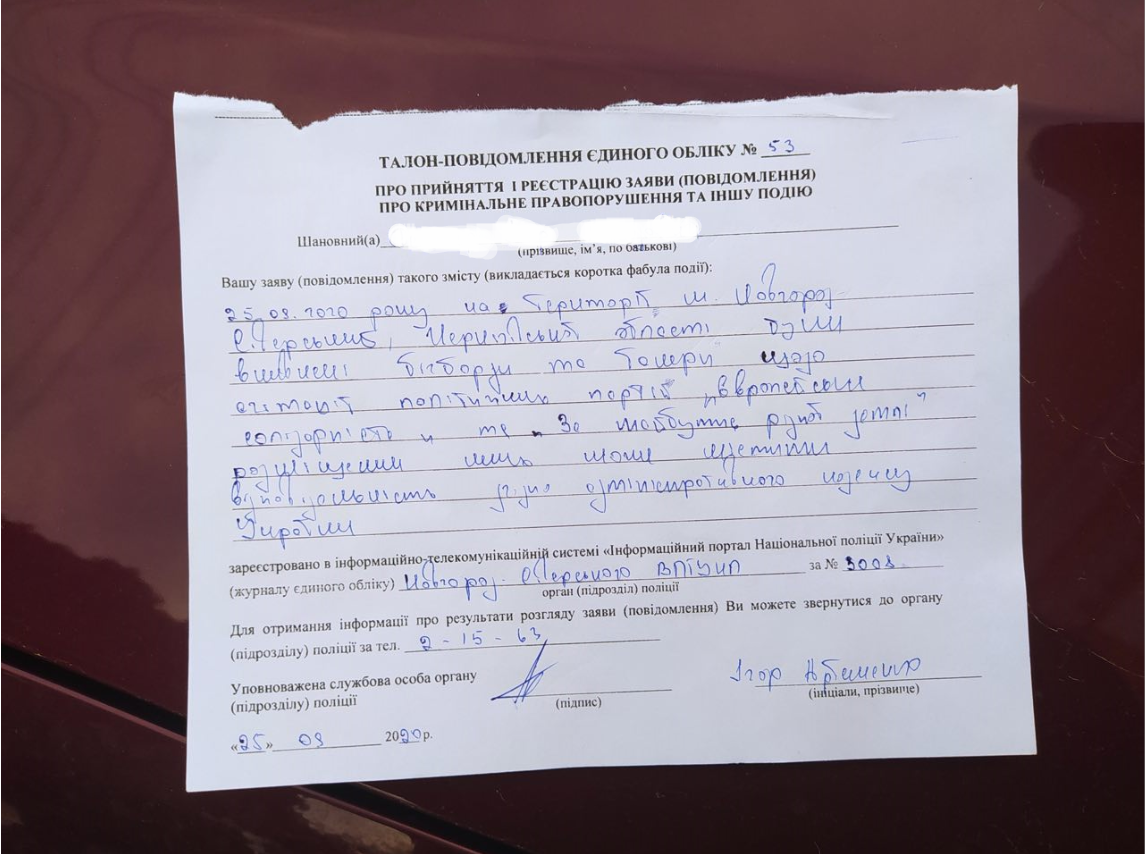 ТАЛОН-ПОВІДОМЛЕННЯ ЄДИНОГО ОБЛІКУ № 53
ПРО ПРИЙНЯТТЯ І РЕЄСТРАЦІЮ ЗАЯВИ (ПОВІДОМЛЕННЯ)
ПРО КРИМІНАЛЬНЕ ПРАВОПОРУШЕННЯ ТА ІНШУ ПОДІЮ
Шановний(а)
(прізвище, ім’я, по батькові)
Вашу заяву (повідомлення) такого змісту (викладається коротка фабула події):
25.09.2020 року на території м. Новгород
Сіверський, Чернігівської області були
виявлені бігборди та банери щодо
агітації політичних партій „Європейська
солідарність" та „За майбутнє рідної землі"
розміщення яких може
відповідальність згідно адміністративного кодексу
України
зареєстровано в інформаційно-телекомунікаційній системі «Інформаційний портал Національної поліції України»
(журналу єдиного обліку) Новгород-Сіверського за №
орган (підрозділ) поліції
Для отримання інформації про результати розгляду заяви (повідомлення) Ви можете звернутися до органу
(підрозділу) поліції за тел. 2-15-63
Уповноважена службова особа органу
(підрозділу) поліції
(підпис)
Ігор Артеменко
(ініціали, прізвище)
«25» 09 2020 р.